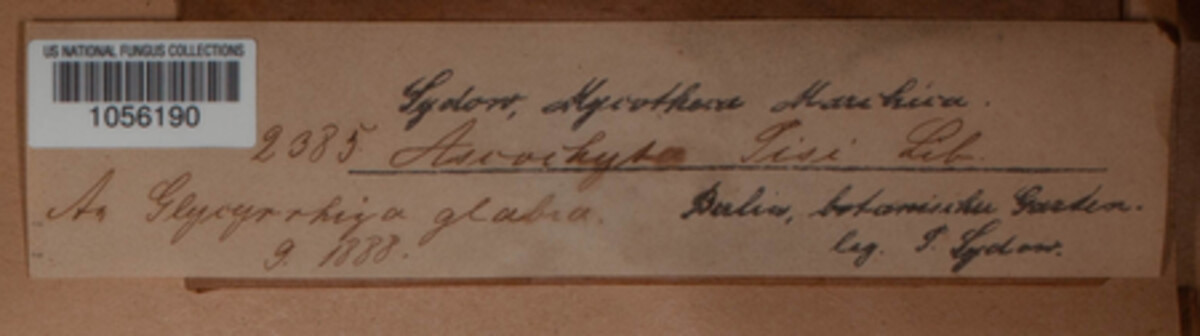 US NATIONAL FUNGUS COLLECTIONS
1056190
Sydow, Mycotheca Marchica.
2385 Ascochyta Pisi Lib.
An Glycyrrhiza glabra.
9. 1888.
Berlin, botanischer Garten.
leg. P. Sydow.